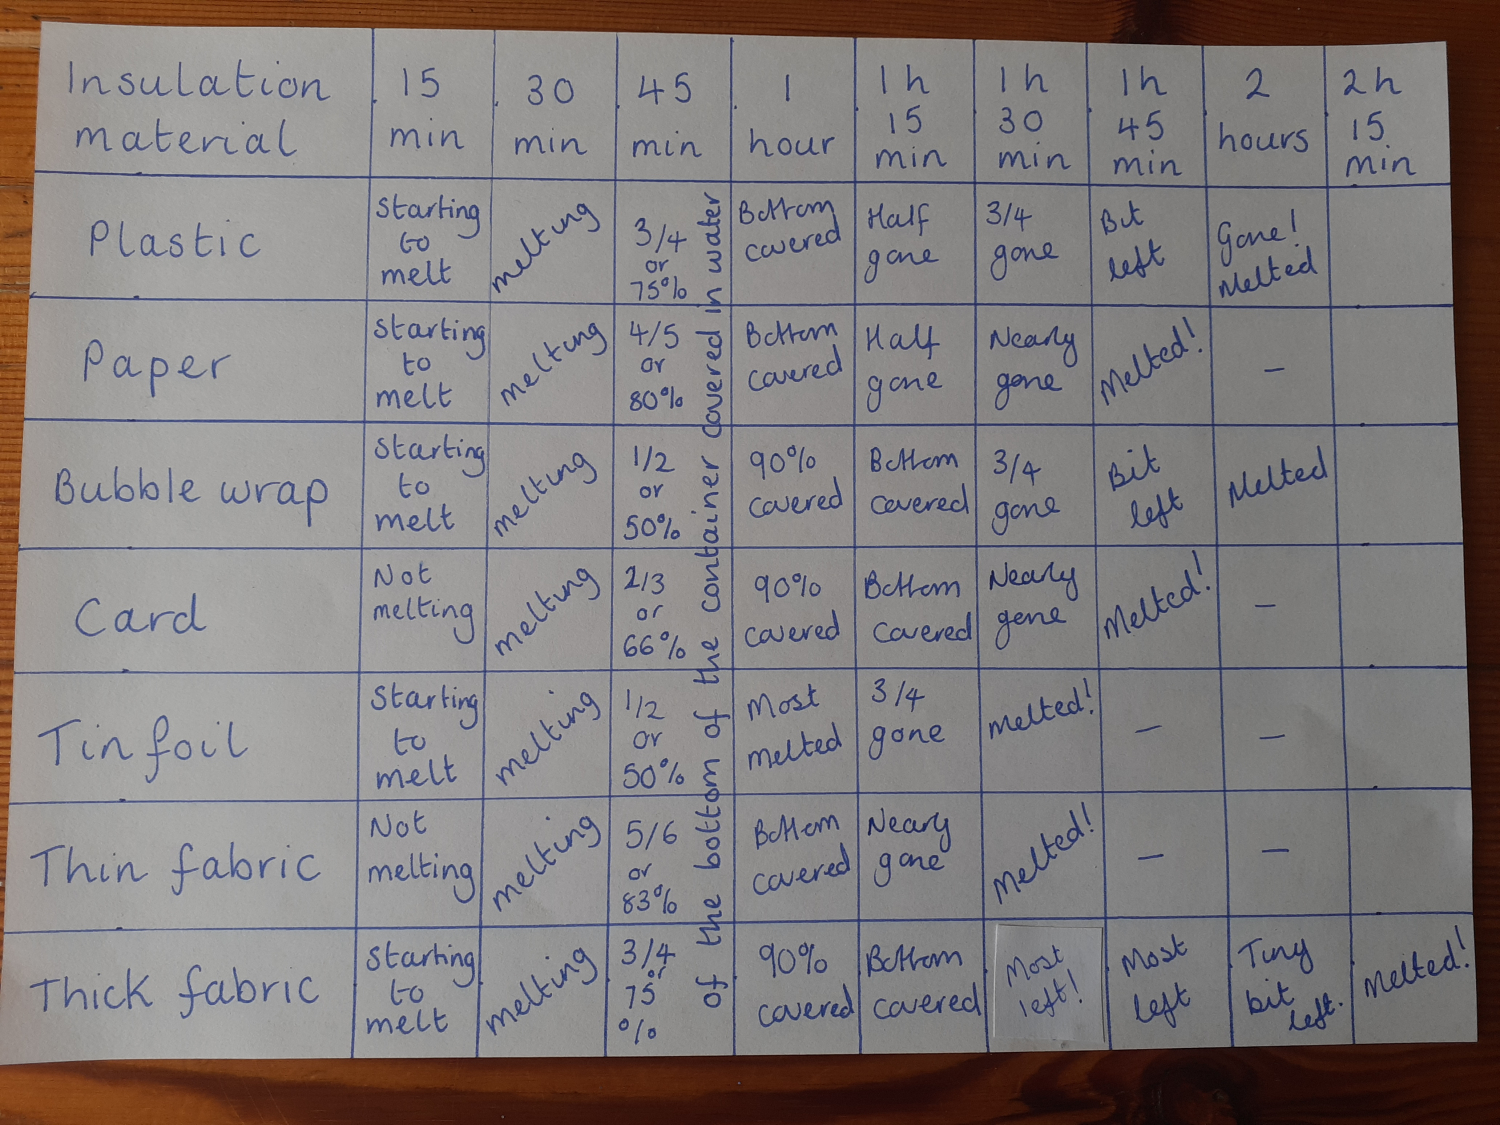 Insulation material
15 min
30 min
45 min
1 hour
1h 15 min
1h 30 min
1h 45 min
2 hours
2h 15 min
Plastic
Starting to melt
melting
3/4 or 75%
Bottom covered
Half gone
3/4 gone
Bit left
Gone! Melted
Paper
Starting to melt
melting
4/5 or 80%
Bottom covered
Half gone
Nearly gone
Melted!
–
Bubble wrap
Starting to melt
melting
1/2 or 50%
90% covered
Bottom covered
3/4 gone
Bit left
Melted
Card
Not melting
melting
2/3 or 66%
90% covered
Bottom covered
Nearly gone
Melted!
–
Tin foil
Starting to melt
melting
1/2 or 50%
Most melted
3/4 gone
Melted!
–
–
Thin fabric
Not melting
melting
5/6 or 83%
Bottom covered
Nearly gone
Melted!
–
–
Thick fabric
Starting to melt
melting
3/4 or 75%
90% covered
Bottom covered
Most left!
Most left
Tiny bit left.
Melted!
of the bottom of the container covered in water